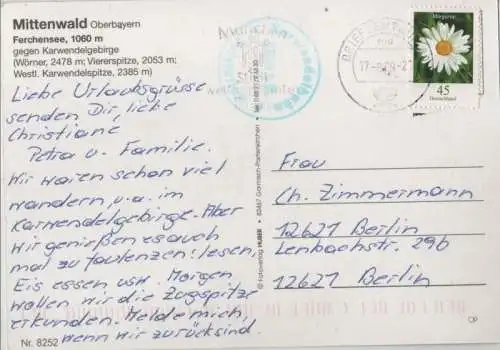 Mittenwald Oberbayern
Ferchensee, 1060 m
gegen Karwendelgebirge
(Wörner, 2478 m; Viererspitze, 2053 m;
Westl. Karwendelspitze, 2385 m)
Liebe Urlaubsgrüsse
senden Dir, liebe
Christiane
Petra u. Familie.
Wir waren schon viel
wandern, u.a. im
Karwendelgebirge. Aber
wir genießen es auch
mal zu faulenzen: lesen,
Eis essen usw. Morgen
wollen wir die Zugspitze
erkunden. Melde mich,
wenn wir zurück sind.
Nr. 8252
© Fotoverlag HUBER • 82467 Garmisch-Partenkirchen
45
Deutschland
Frau
Ch. Zimmermann
12621 Berlin
Lenbachstr. 29b
12621 Berlin